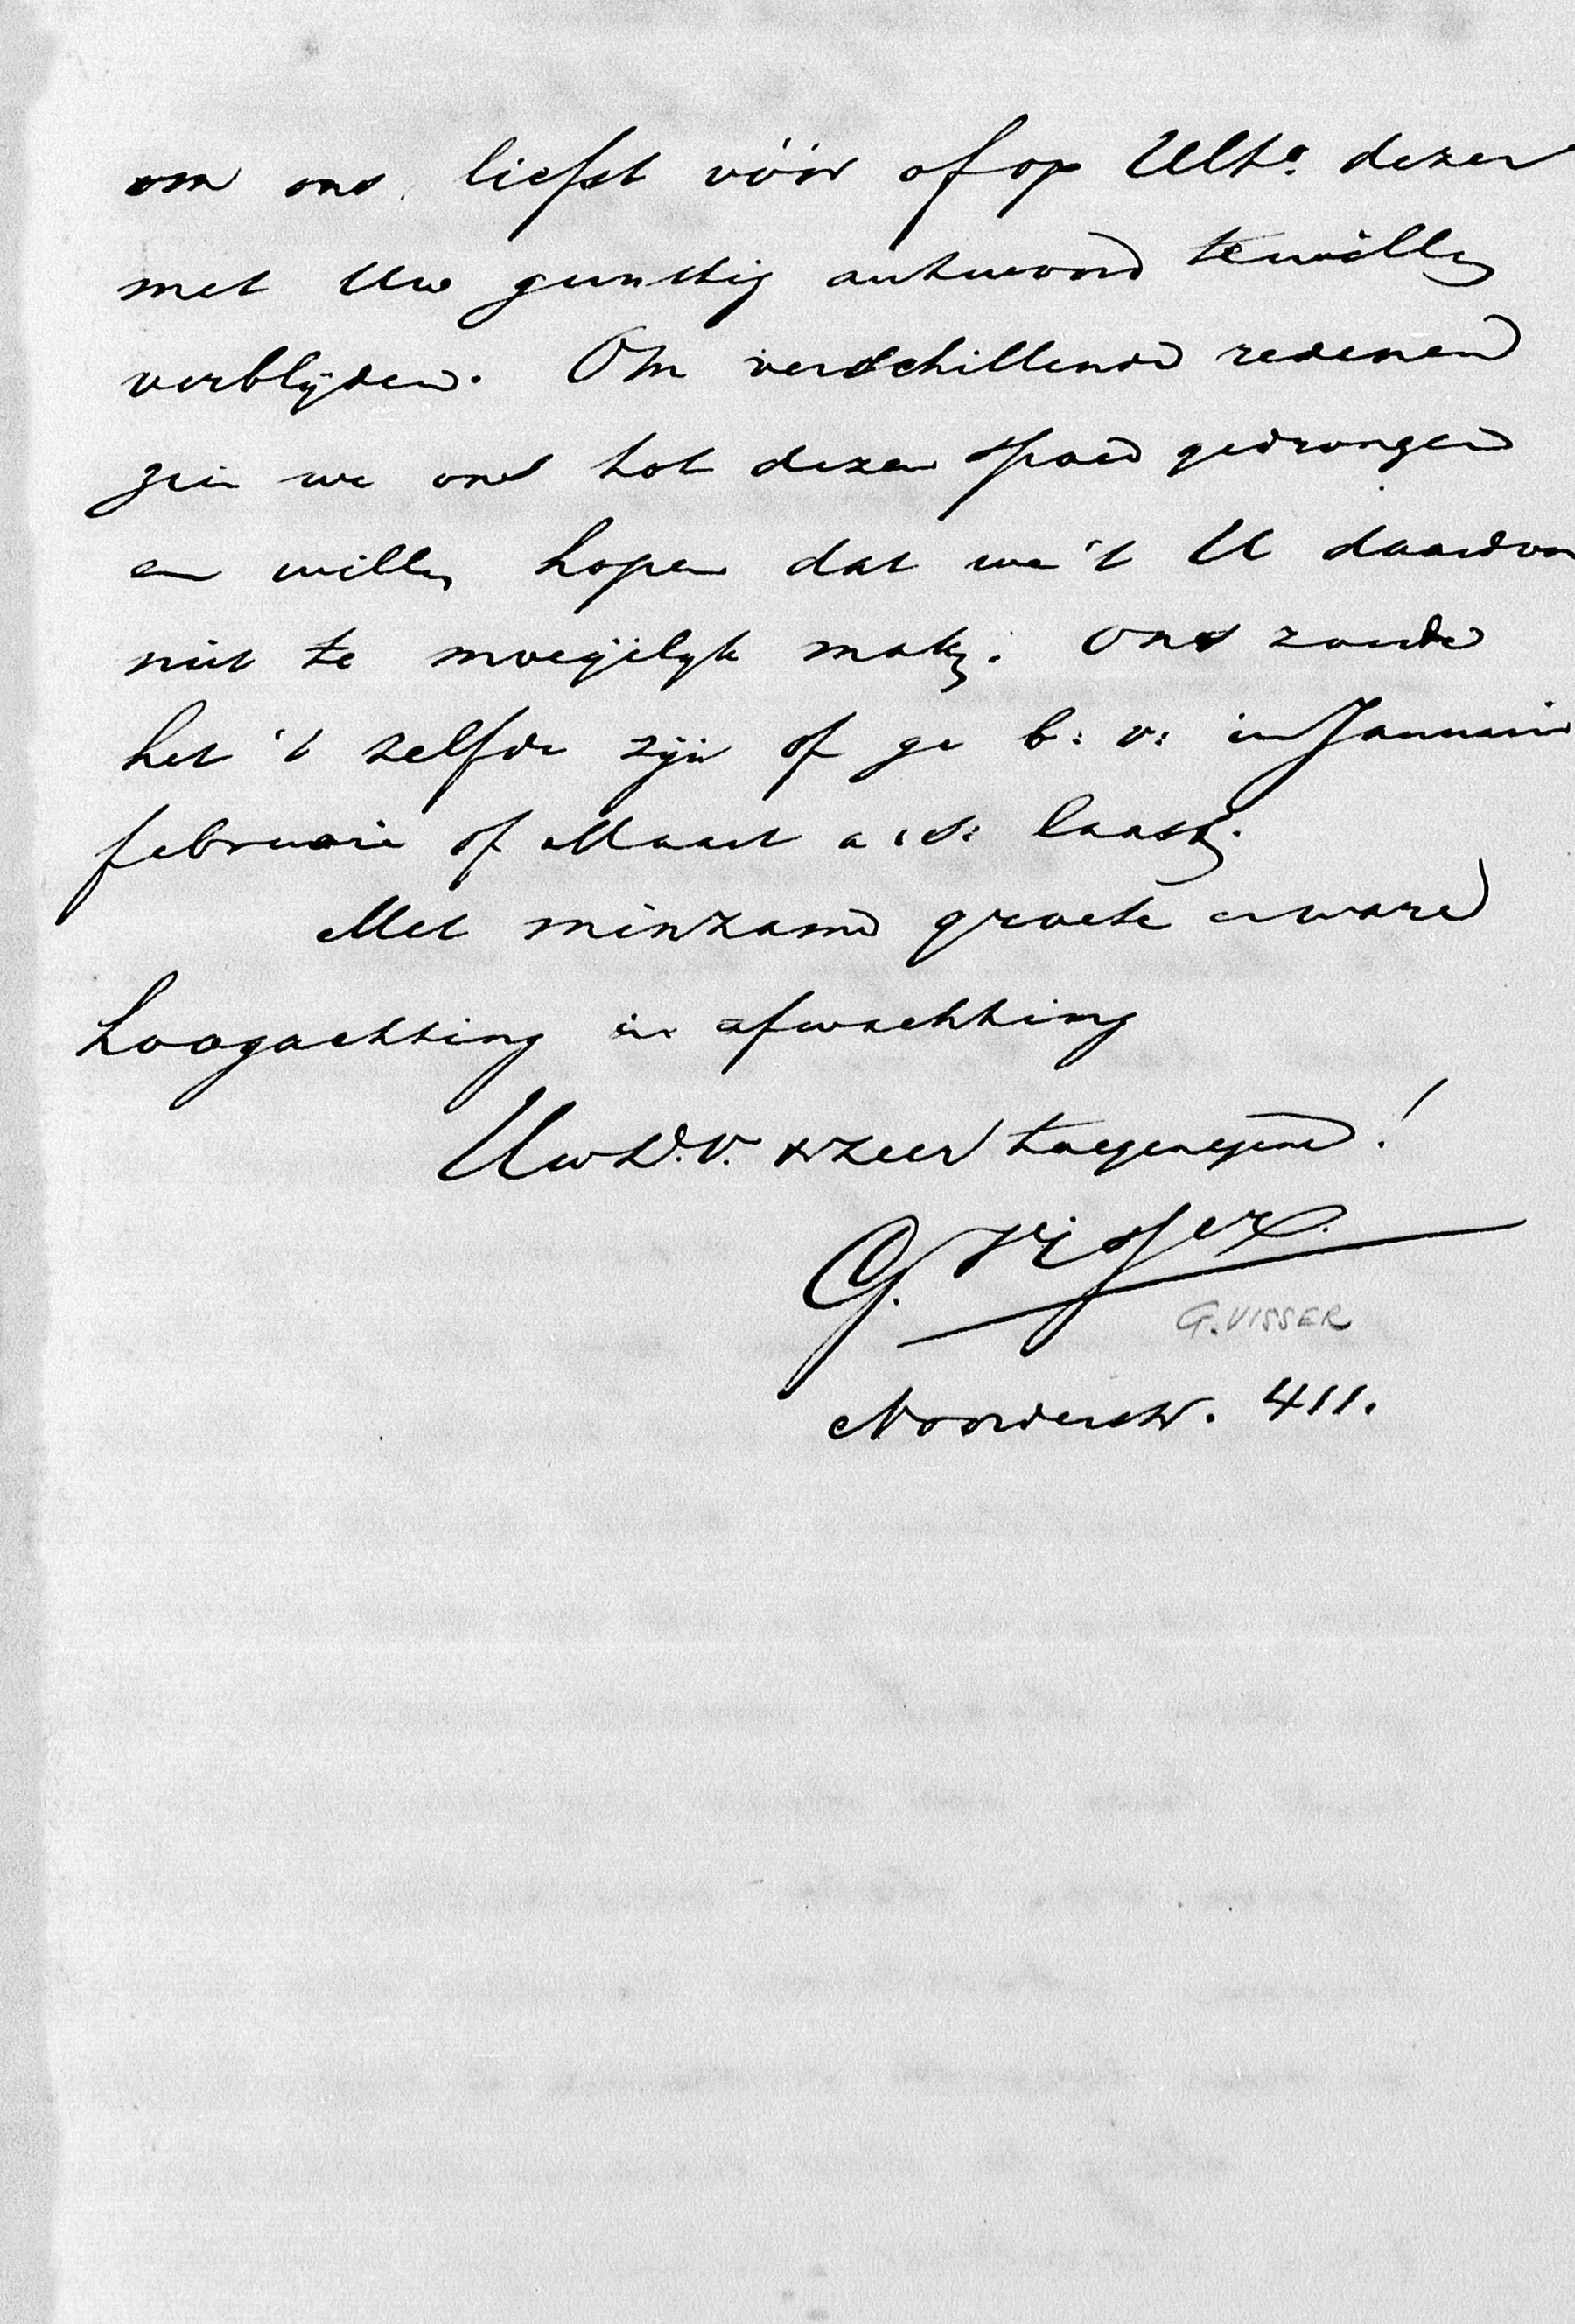 om ons liefst vóór of op Ulto dezer
met Uw gunstig antwoord te willen
verblijden. Om verschillende redenen
zien we ons tot dezen spoed gedrongen
en willen hopen dat we 't U daardoor
niet te moeijelijk maken. Ons zoude
het 't zelfde zijn of ge b: v: in Januari
februari of Maart a.s:
Met minzame groete en ware
hoogachting in afwachting
Uw d.v. zeer toegenegene!
G. Visser.
G. VISSER
Noorderstr. 411.